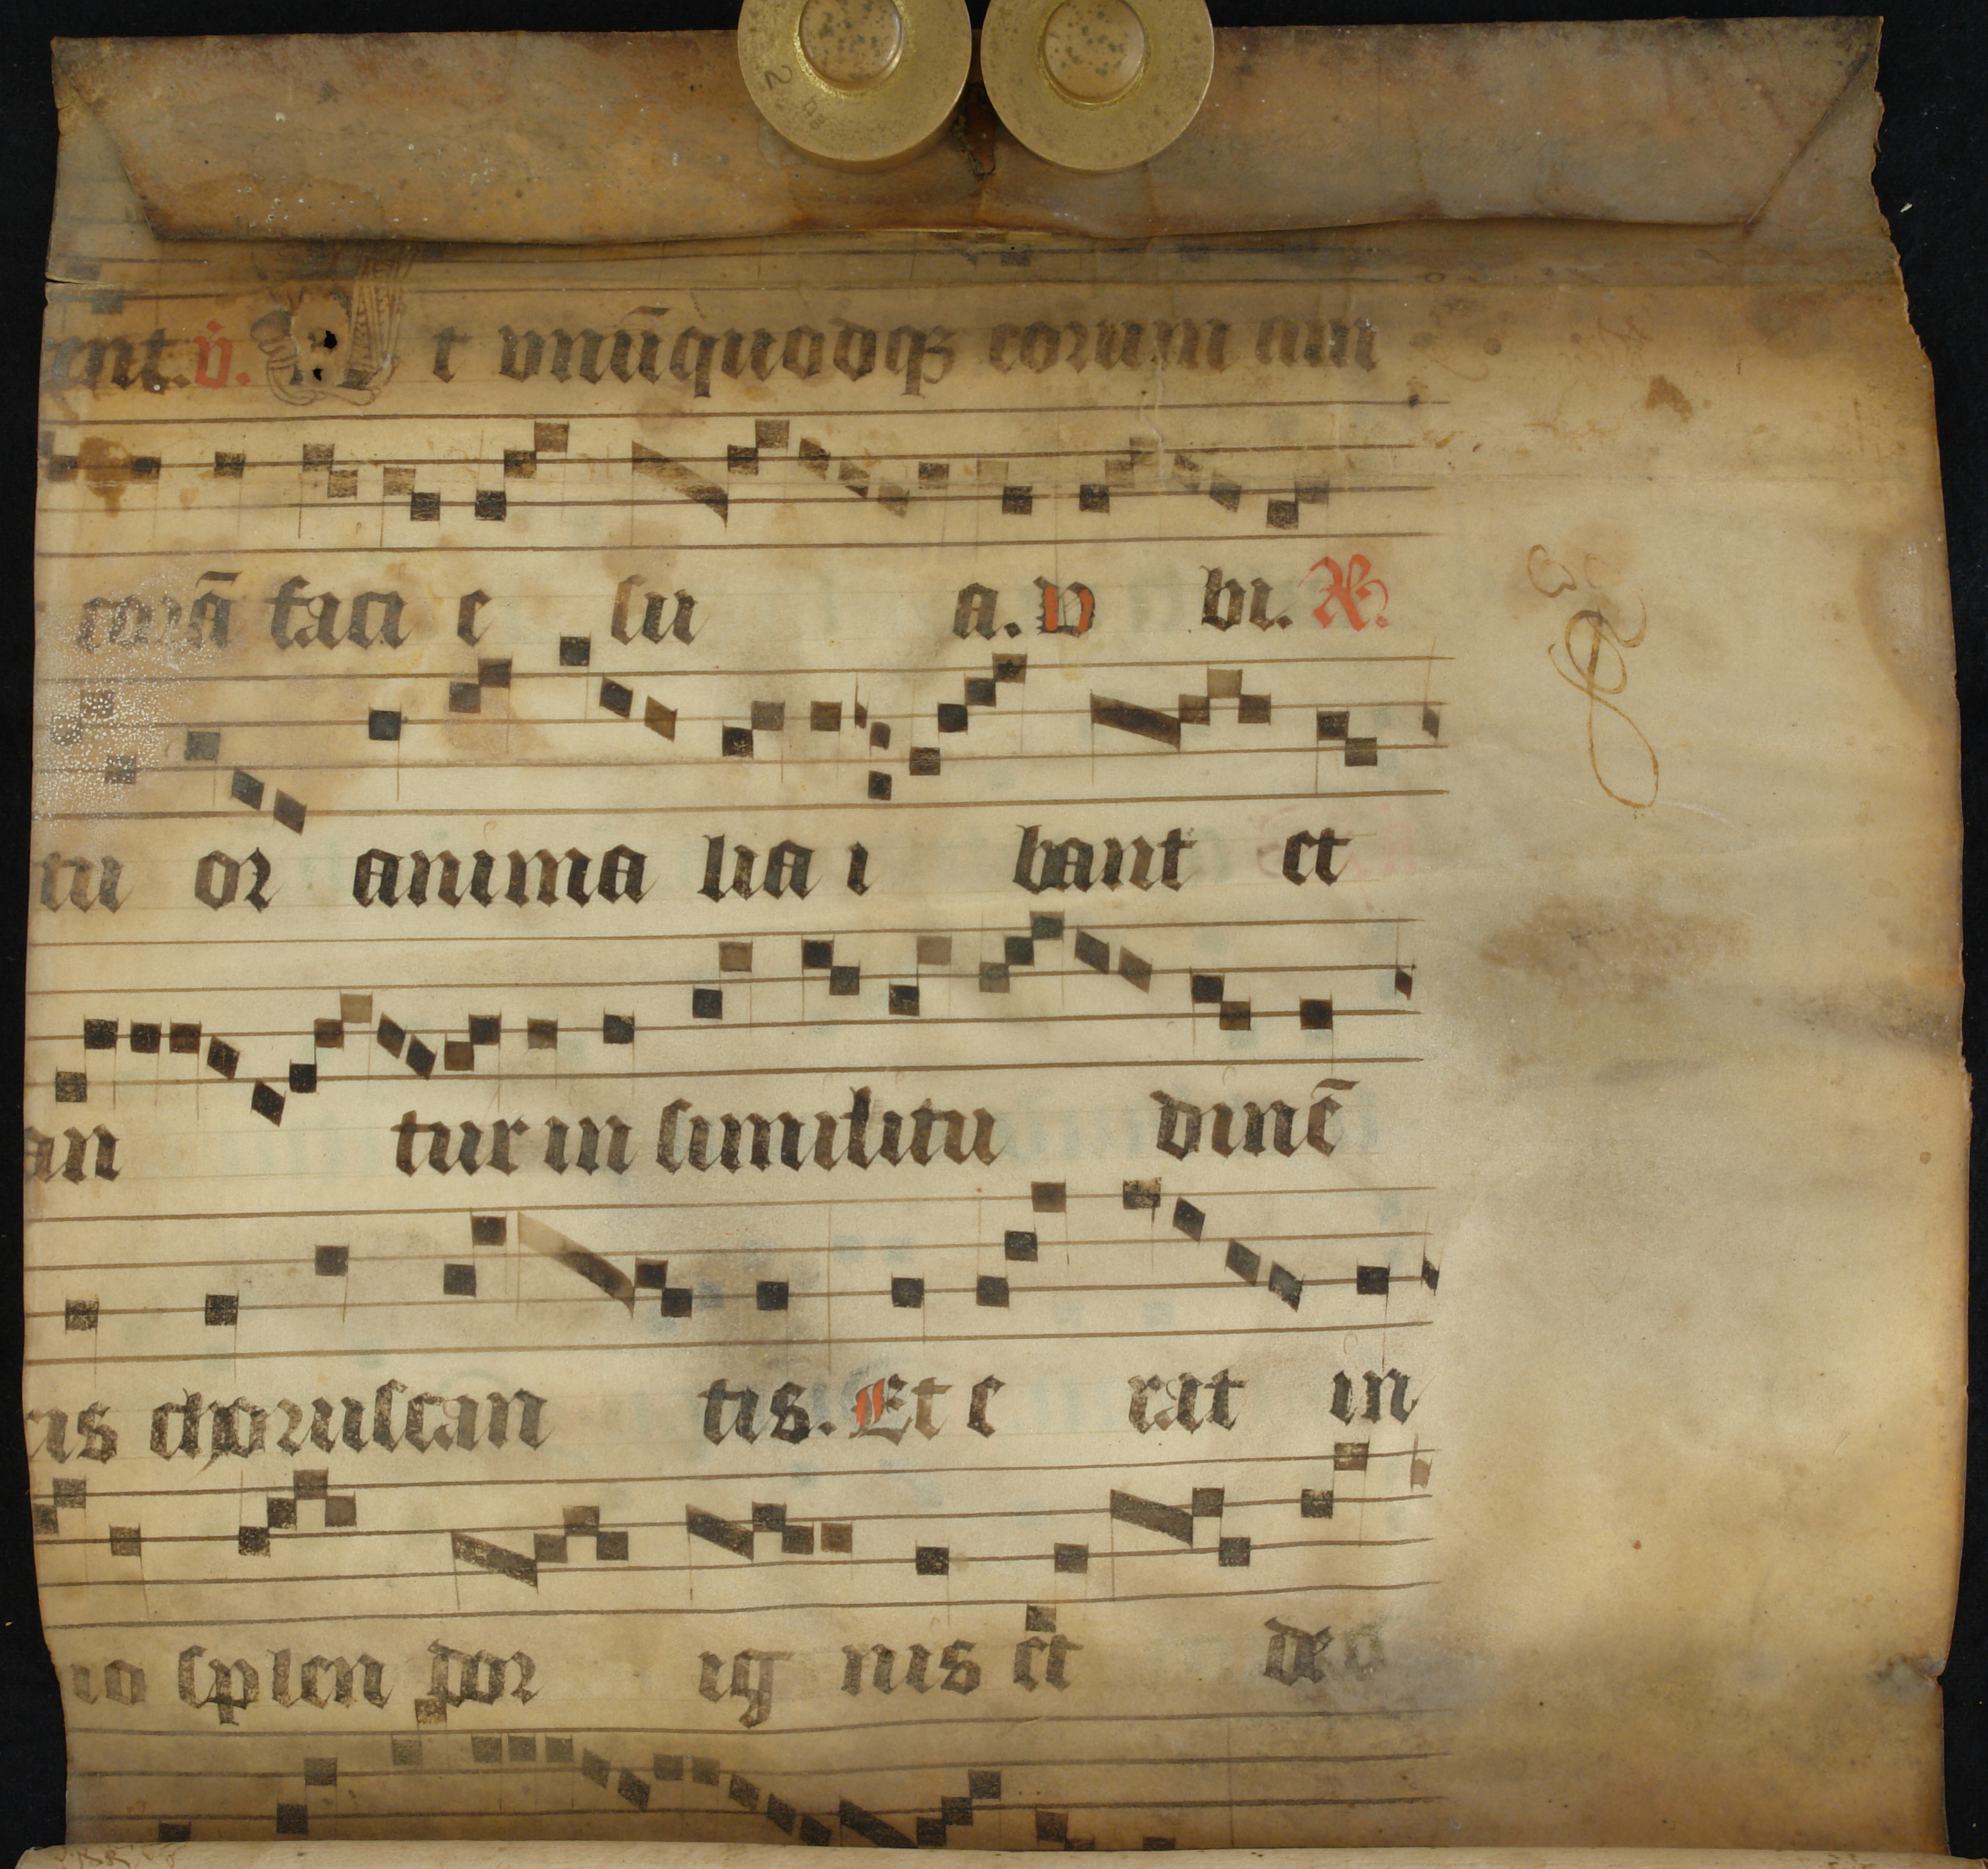 ant. v. Et vnũquodqꝫ eorum am
corã faci e su a. v bi. R.
tu or anima lia i bant et
an tur in similitu dinẽ
is choruscan tis. Et e rat in
io splen dor ig nis et de